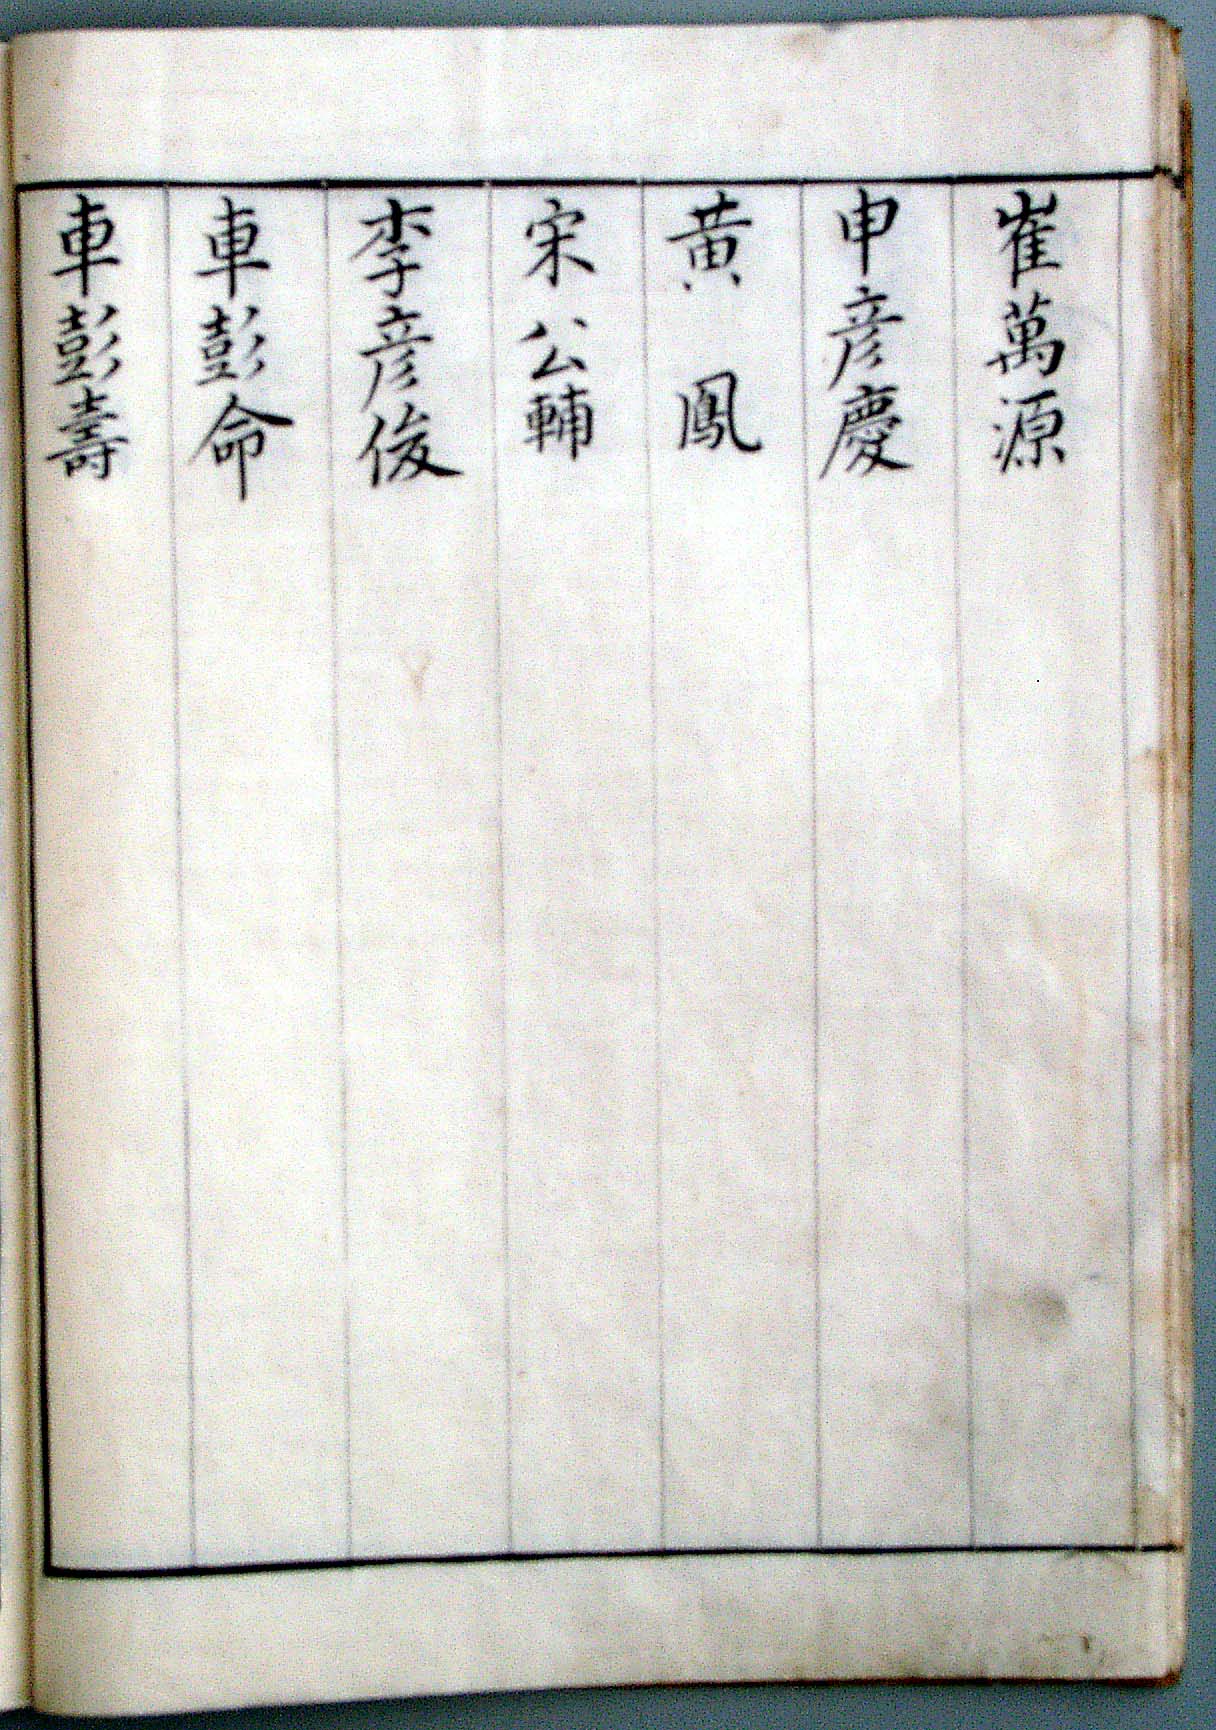 崔萬源
申彦慶
黃鳳
宋公輔
李彦俊
車彭命
車彭壽